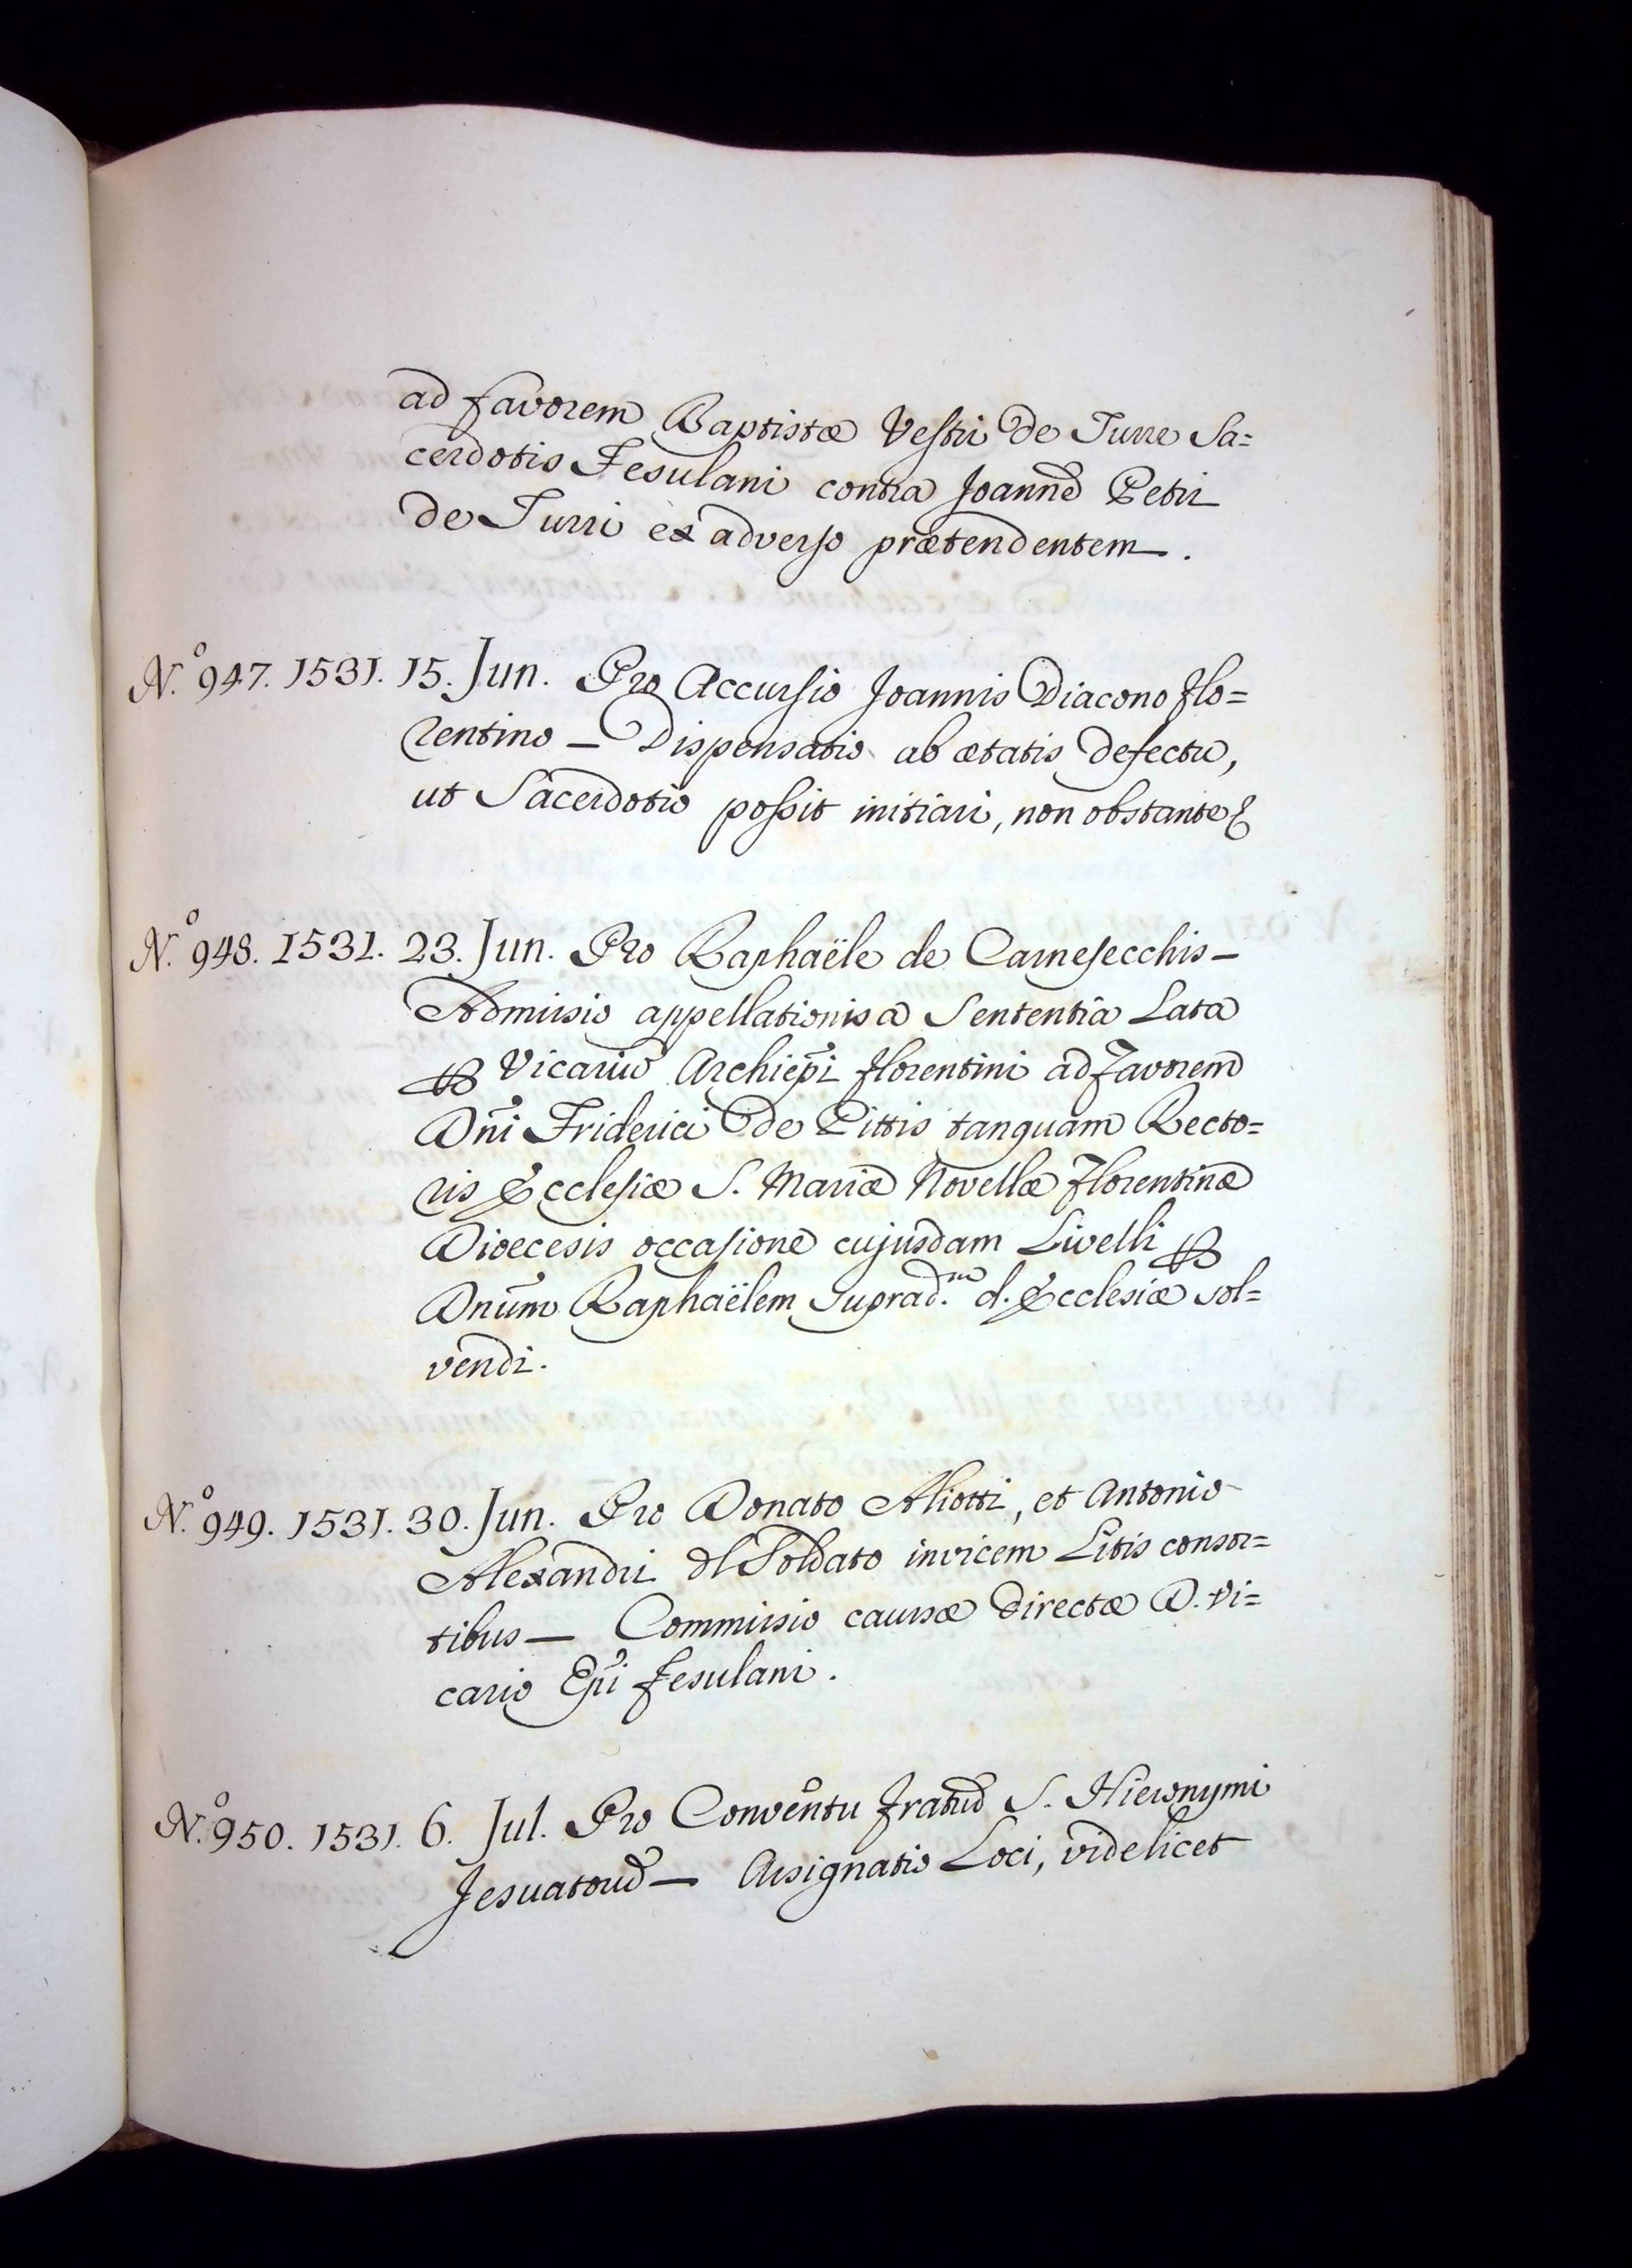 ad favorem Baptistæ Vestri de Turre Sa=
cerdotis Fesulani contra Joanne Petri
de Turri ex adverso prætendentem.
N.º 947. 1531. 15. Jun. Pro Accursio Joannis Diacono Flo=
rentino — Dispensatio ab ætatis defectu,
ut Sacerdotio possit initiari, non obstante &
N.º 948. 1531. 23. Jun. Pro Raphaële de Carnesecchis —
Admissio appellationis a Sententia Lata
Vicariũ Archiepĩ Florentini ad favorem
Dñi Friderici de Pittis tanquam Recto=
ris Ecclesiæ S. Mariæ Novellæ Florentinæ
Dioecesis occasione cujusdam Livelli
Dnũm Raphaëlem Suprad.m d. Ecclesiæ sol=
vendi.
N.º 949. 1531. 30. Jun. Pro Donato Aliotti, et Antonio
Alexandri del Soldato invicem Litis consor=
tibus — Commissio causæ directæ D. Vi=
cario Epĩ Fesulani.
N.º 950. 1531. 6. Jul. Pro Conventu Fratrũ S. Hieronymi
Jesuatorũ — Assignatio Loci, videlicet